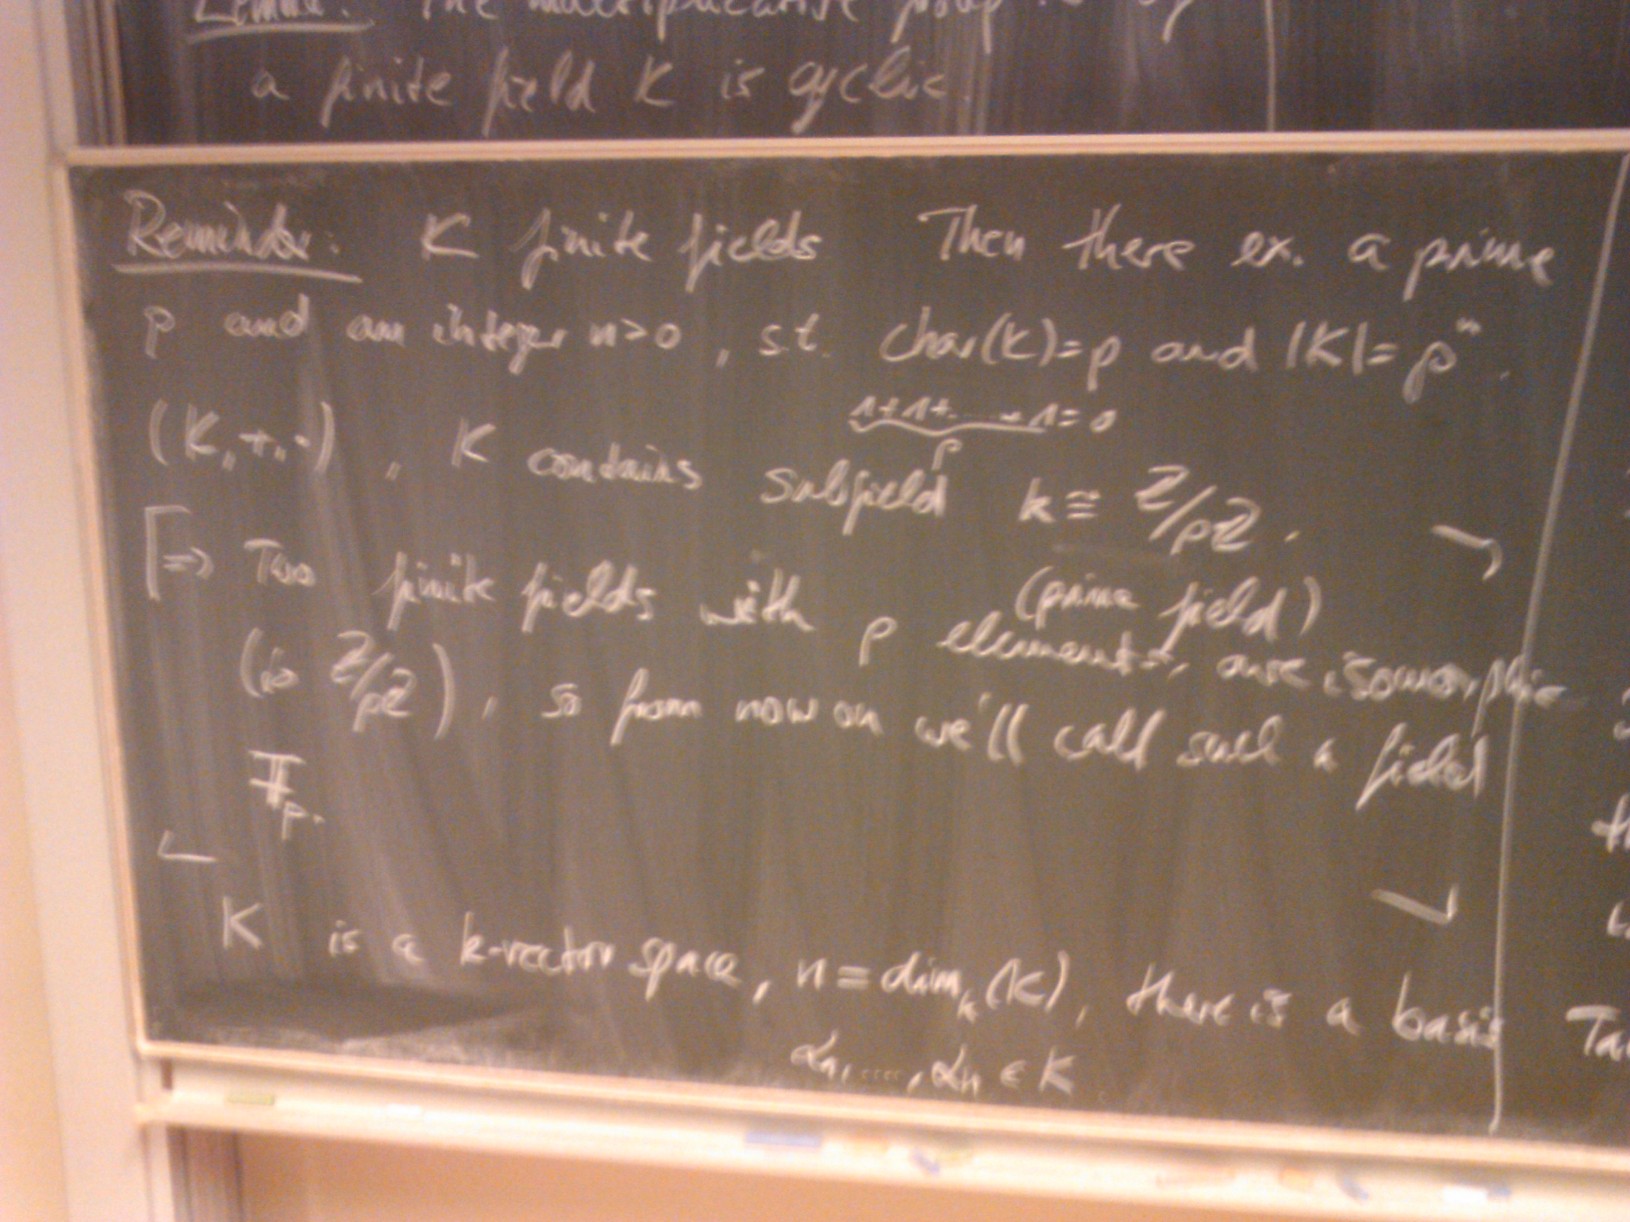 Lemma: The multiplicative group of
a finite field K is cyclic.
Reminder: K finite fields Then there ex. a prime
p and an integer n>0, s.t. char(K)=p and |K|=pⁿ.
1+1+...+1=0
p
(K,+,·), K contains subfield k≅ℤ/pℤ.
(prime field)
⇒ Two finite fields with p elements, are isomorphic
(to ℤ/pℤ), so from now on we'll call such a field
𝔽ₚ.
K is a k-vector space, n = dimₖ(K), there is a basis
α₁,....,αₙ ∈ K